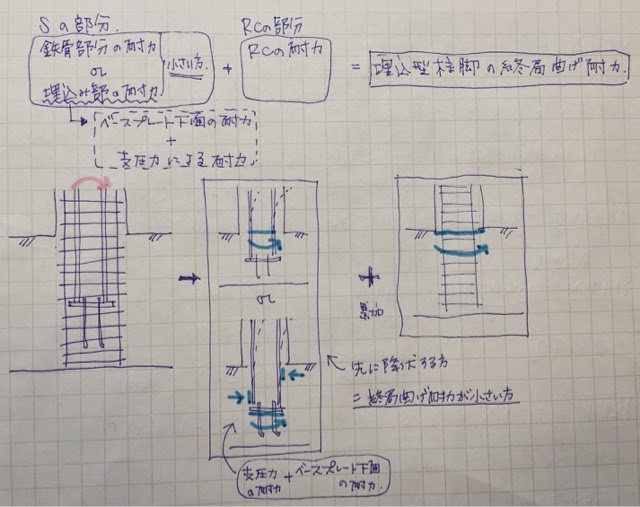 Sの部分.
RCの部分
鉄骨部分の耐力
or
埋込み部の耐力
小さい方.
+
RCの耐力
=
埋込型柱脚の終局曲げ耐力.
ベースプレート下面の耐力
+
支圧力による耐力
or
+
累加
先に降伏する方
=終局曲げ耐力が小さい方
支圧力の耐力
+
ベースプレート下面の耐力.